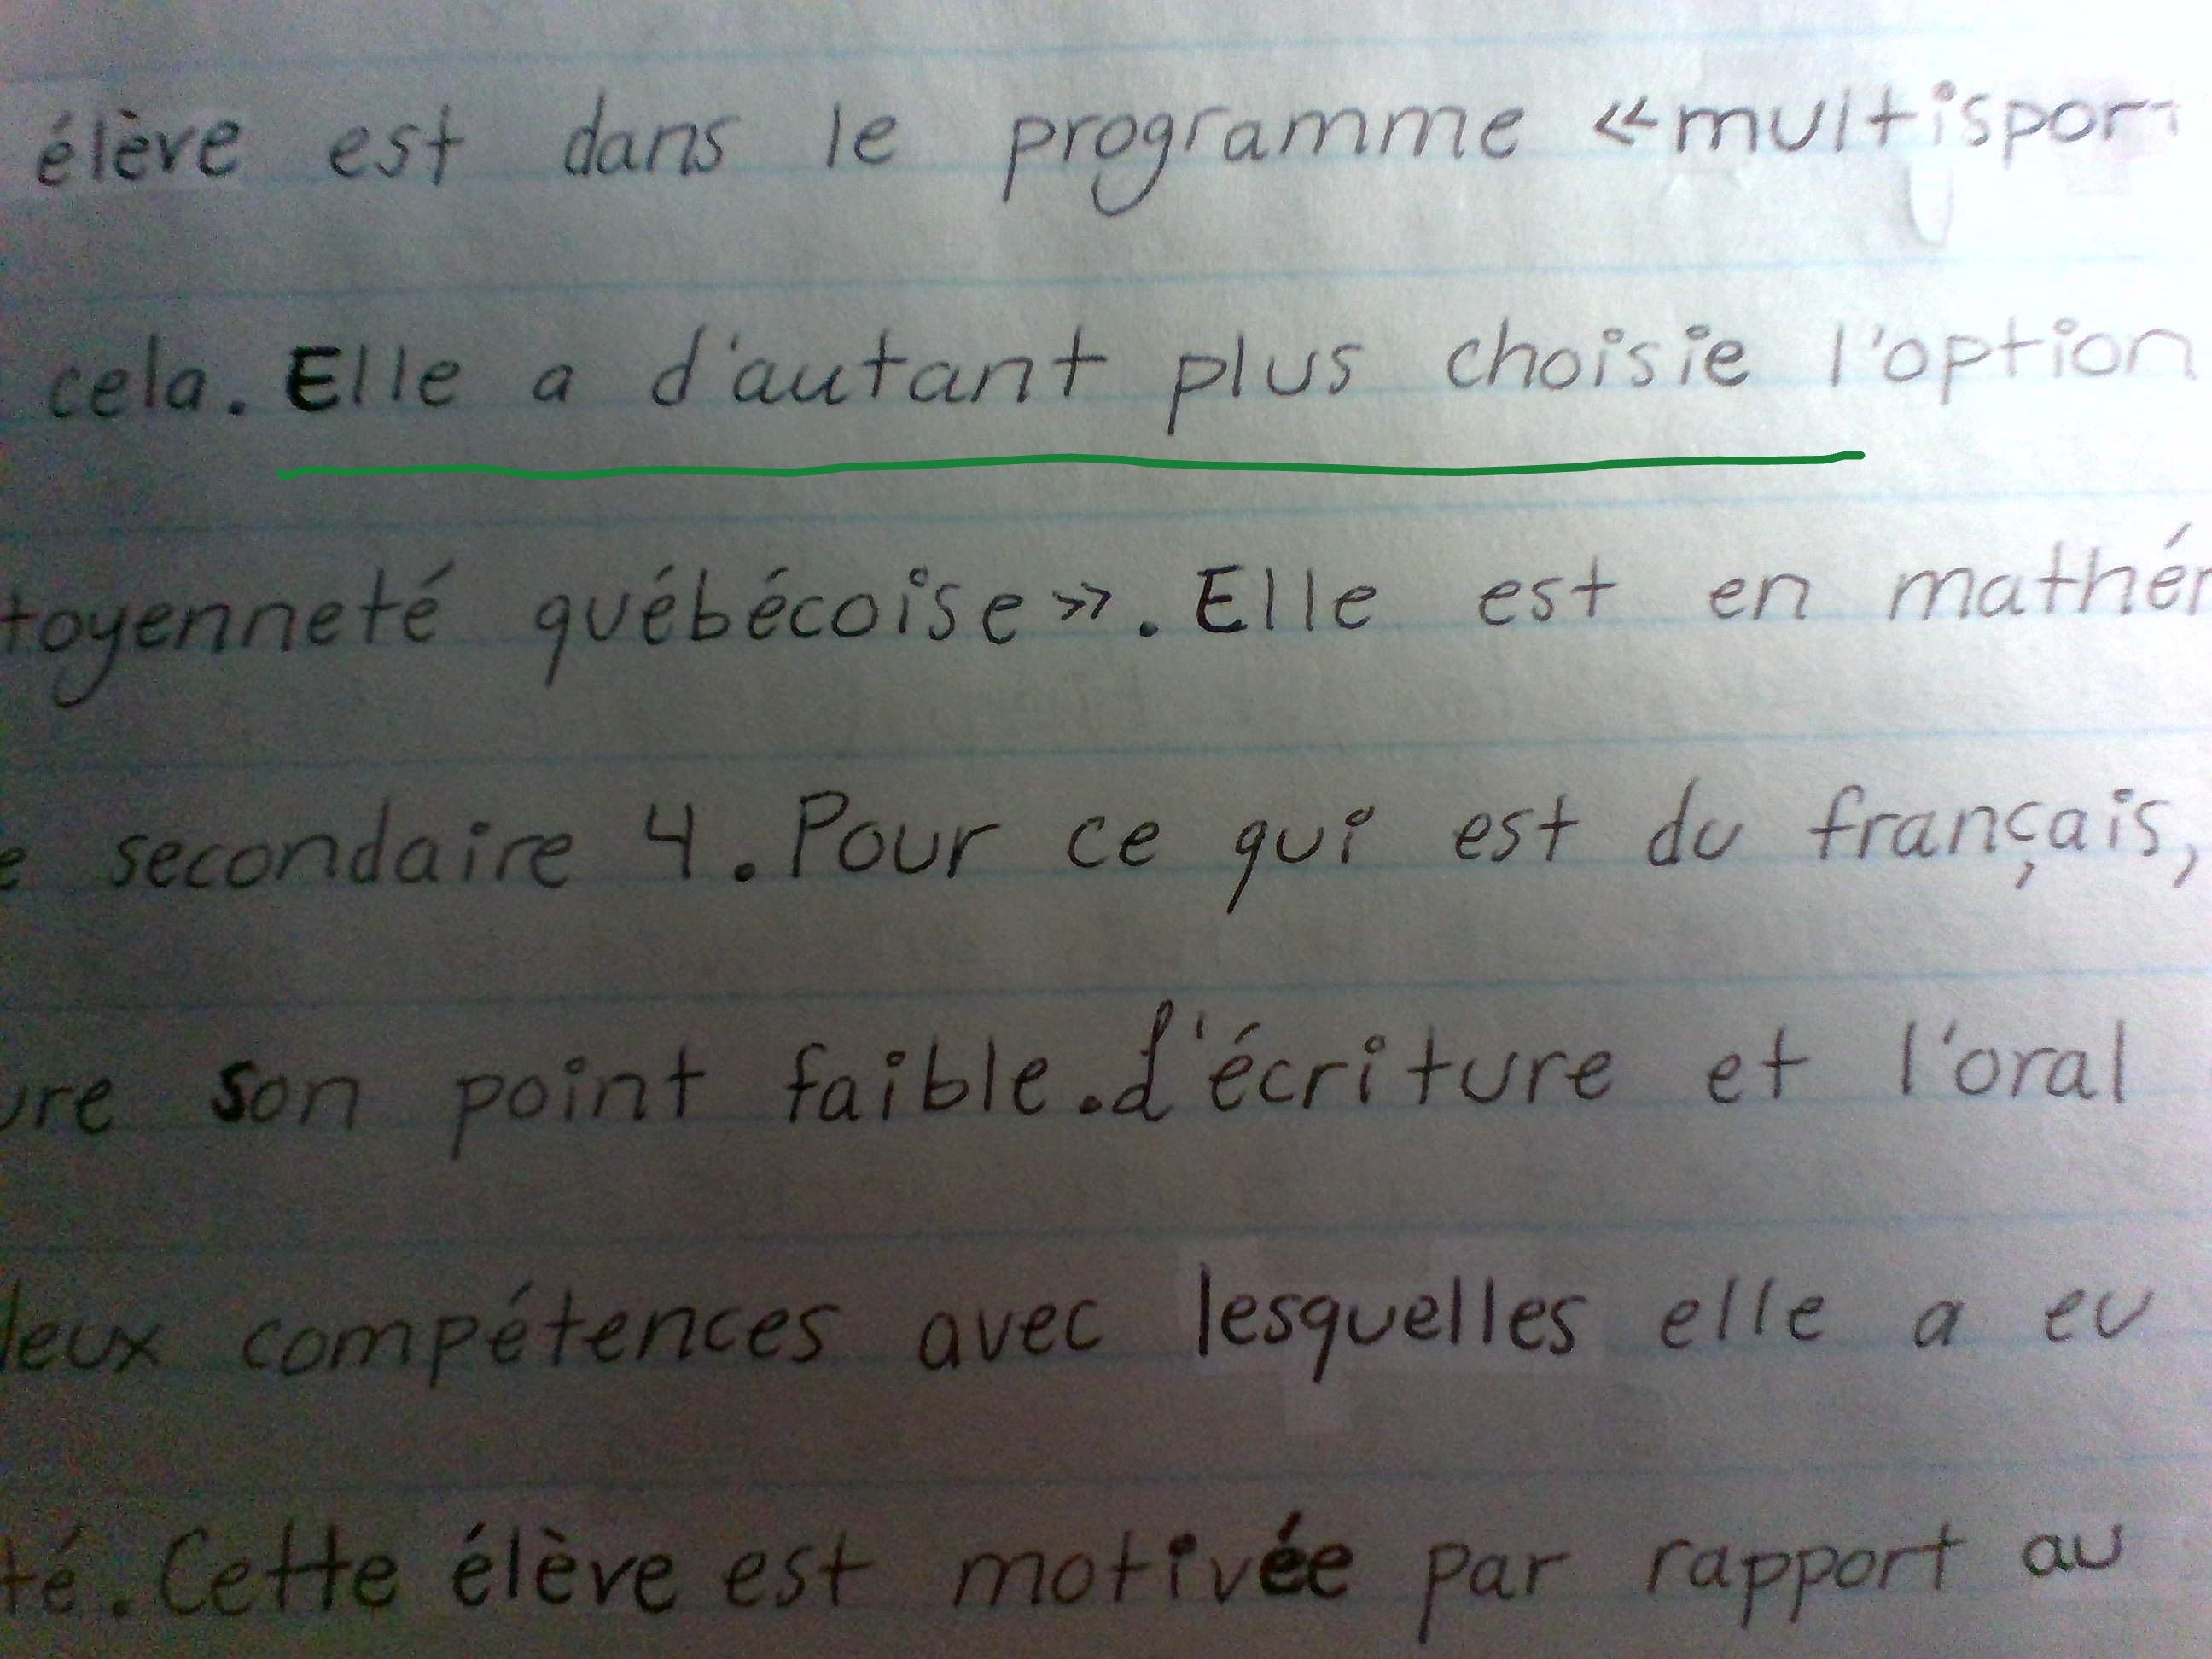 élève est dans le programme «multispor
cela. Elle a d'autant plus choisie l'option
toyenneté québécoise». Elle est en mathé
e secondaire 4. Pour ce qui est du français,
ure son point faible. L'écriture et l'oral
deux compétences avec lesquelles elle a eu
té. Cette élève est motivée par rapport au